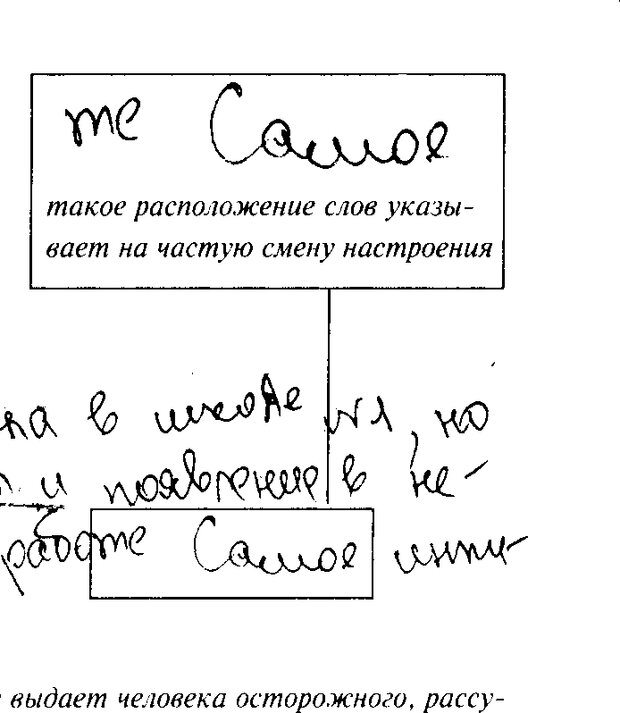 же Самое
такое расположение слов указы-
вает на частую смену настроения
на в школе №1, но
и появление в не-
работе Самое инти-
выдает человека осторожного, рассу-